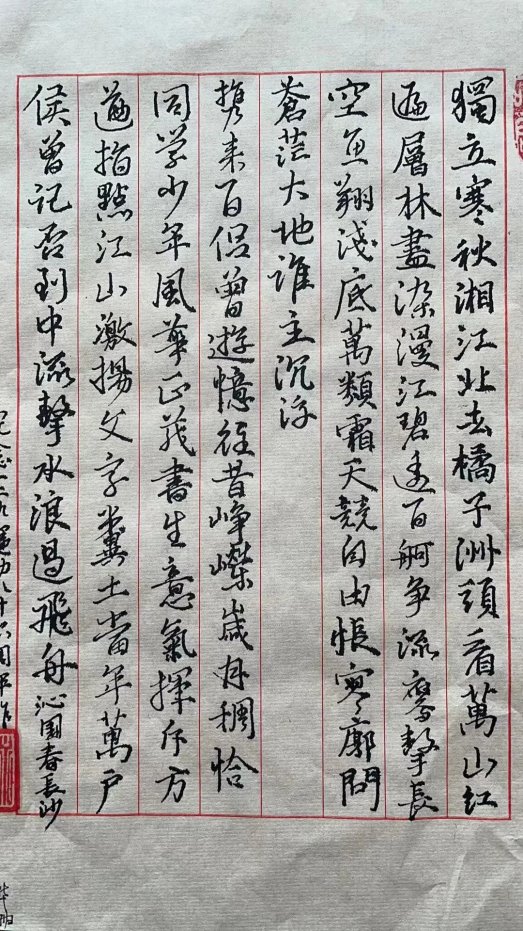 獨立寒秋湘江北去橘子洲頭看萬山红
遍層林盡染漫江碧透百舸争流鹰擊長
空魚翔淺底萬類霜天競自由悵寥廓問
蒼茫大地誰主沉浮
携来百侣曾遊憶往昔峥嵘歲月稠恰
同学少年風華正茂書生意氣揮斥方
遒指點江山激揚文字糞土當年萬户
侯曾記否到中流擊水浪遏飛舟沁園春長沙
十六周年作